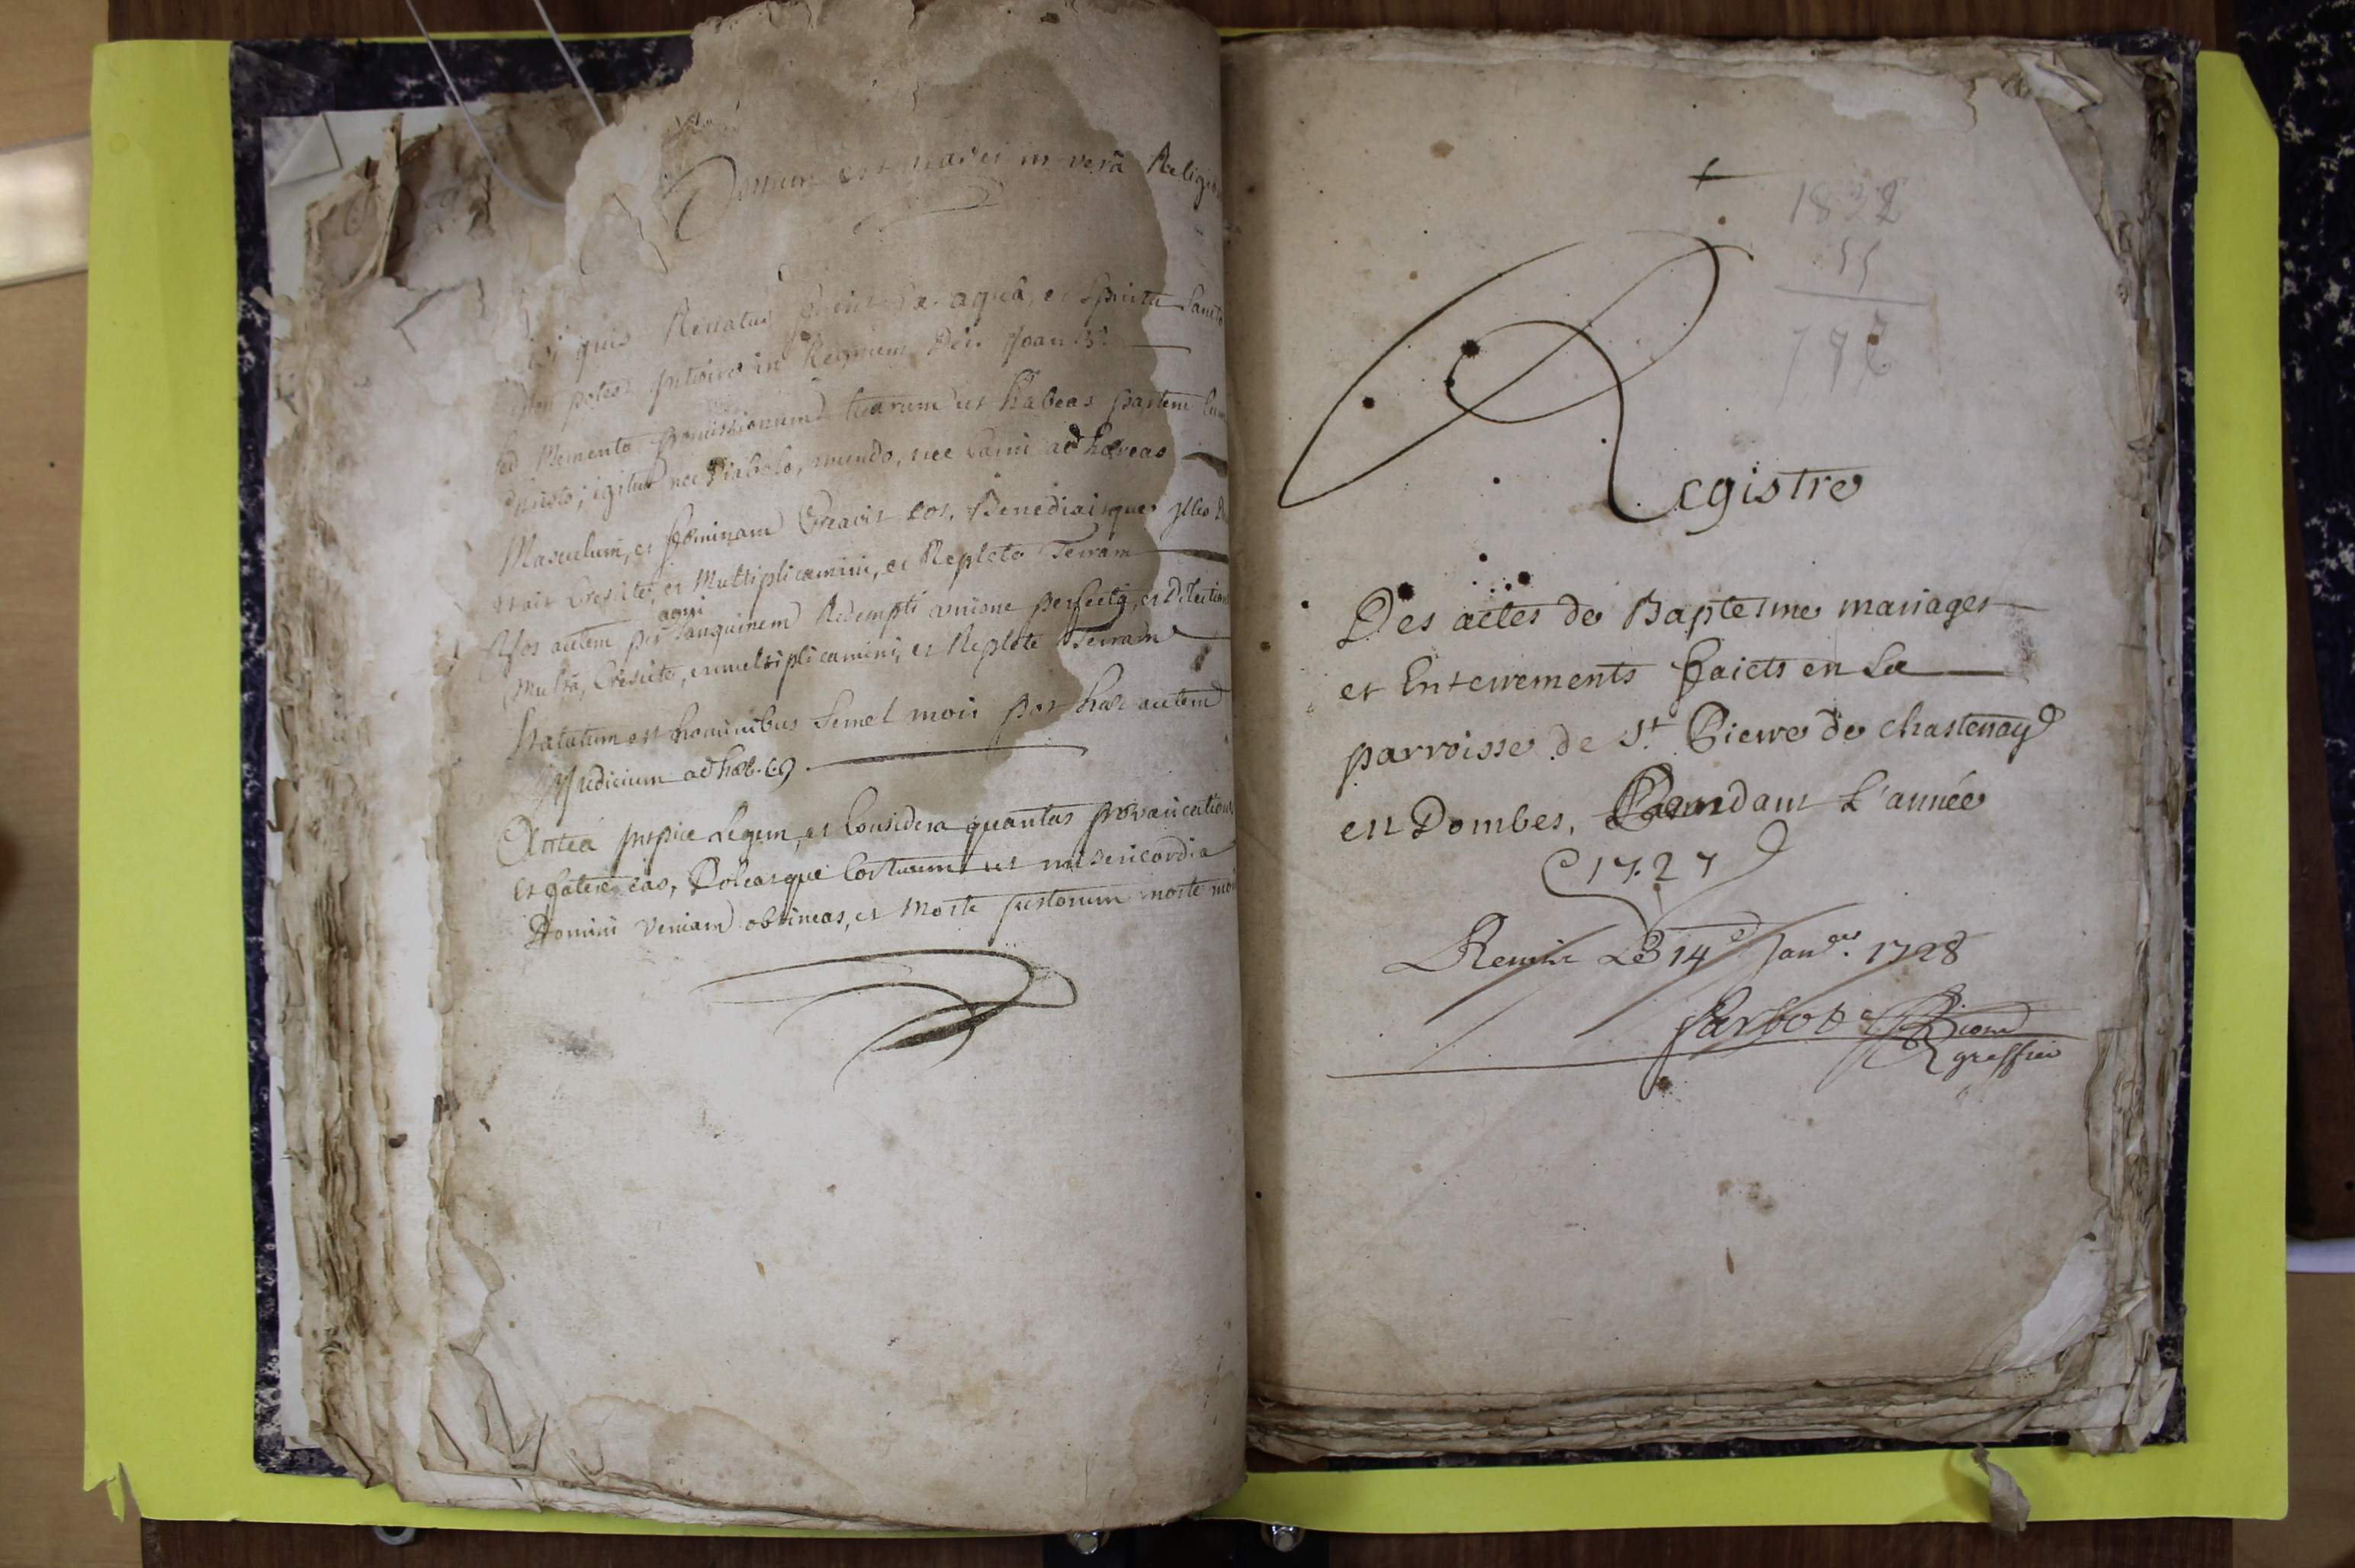 Donum est nasci in verâ Religi
isi quis Renatus fuerit Ex aquâ, et Spiritu Sancto
Non potest introire in Regnum Dei. Joan 3º
sed Memento promissionum tuarum ut habeas partem cum
Christo; igitur nec Diabolo, mundo, nec Carni adhæreas
Masculum, et fœminam Creavit eos, Benedixitque illis D
et ait Crescite, et Multiplicamini, et Replete Terram
Vos autem per agni Sanguinem Redempti unione perfectâ, et Dilectione
Multâ, Crescite, et multiplicamini, et Replete Terram
Statutum est hominibus Semel mori post hoc autem
Judicium ad hæb. C. 9
Anteà inspice Legem, et Considera quantas prævaricationes
Et fateris eas, Doleasque Cortuum ut misericordia
Domini Veniam obtineas, et Morte justorum morte mori
1822
11
Registre
Des actes de Baptesme mariages
et Enterrements faicts en La
parroisse de St. Pierre de Chastenay
en Dombes, Pendant L'année
1727
Remis Le 14e Janer. 1728
greffier